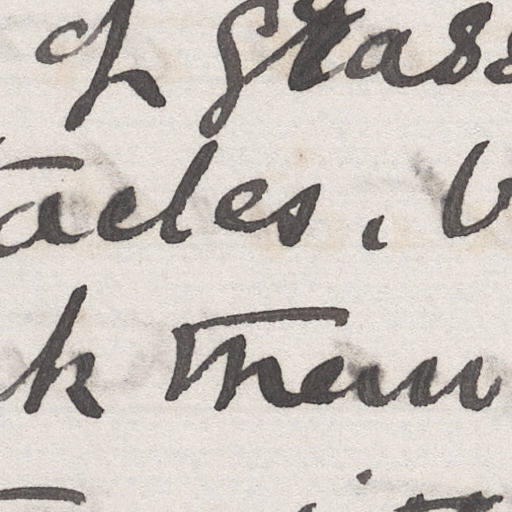 of grass
tacles,
k them